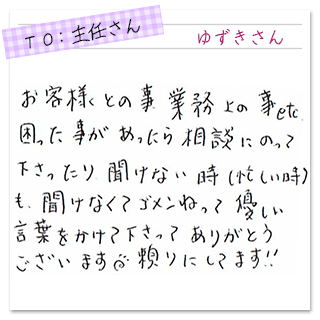 TO:主任さん
ゆずきさん
お客様との事 業務上の事etc.
困った事があったら相談にのって
下さったり聞けない時(忙しい時)
も聞けなくてゴメンねって優しい
言葉をかけて下さってありがとう
ございます 頼りにしてます!!